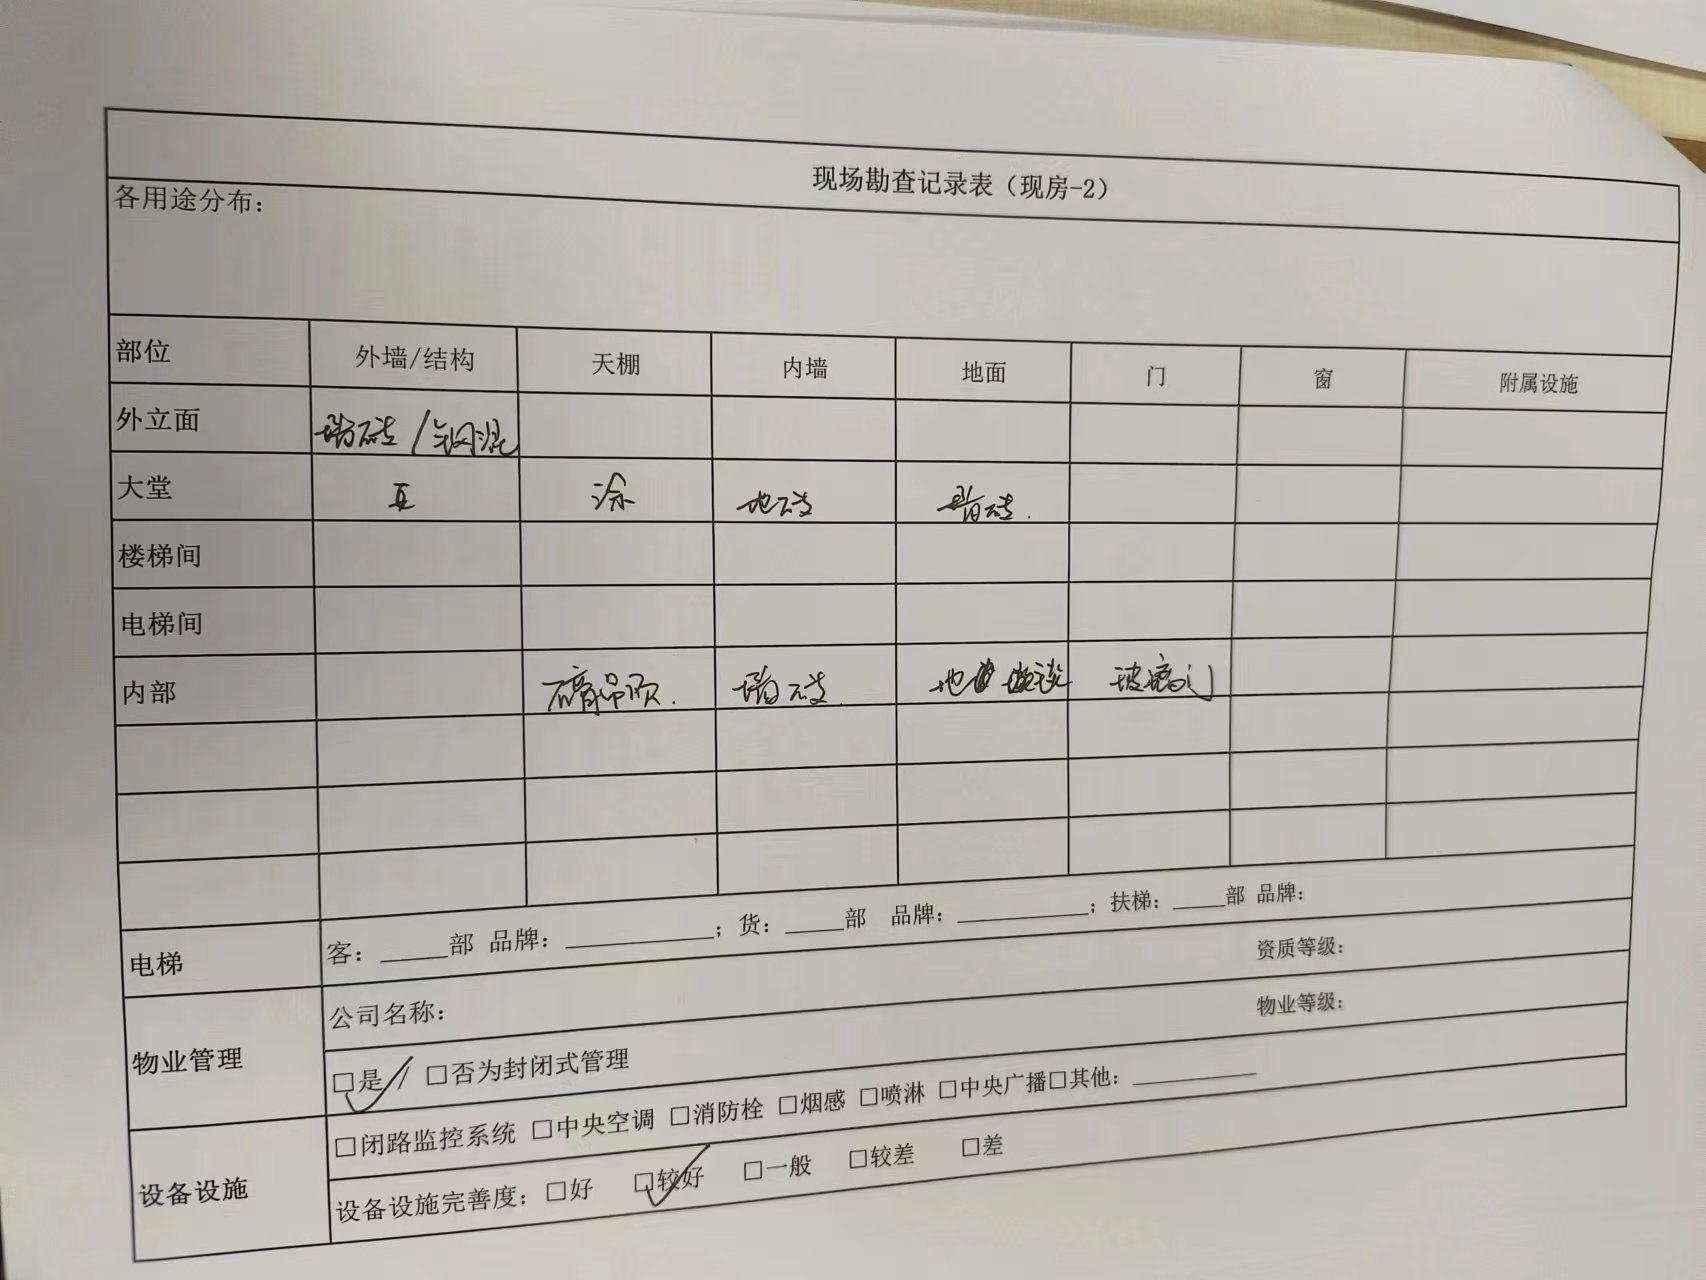 现场勘查记录表（现房-2）
各用途分布：
部位 外墙/结构 天棚 内墙 地面 门 窗 附属设施
外立面 墙砖/钢混
大堂 涂 地砖 墙砖.
楼梯间
电梯间
内部 石膏吊顶. 墙砖. 地 玻璃门
电梯 客：____部 品牌：__________；货：____部 品牌：_________；扶梯：____部 品牌：
物业管理 公司名称： 资质等级：
□是 / □否为封闭式管理 物业等级：
设备设施 □闭路监控系统 □中央空调 □消防栓 □烟感 □喷淋 □中央广播□其他：_________
设备设施完善度：□好 □较好 □一般 □较差 □差